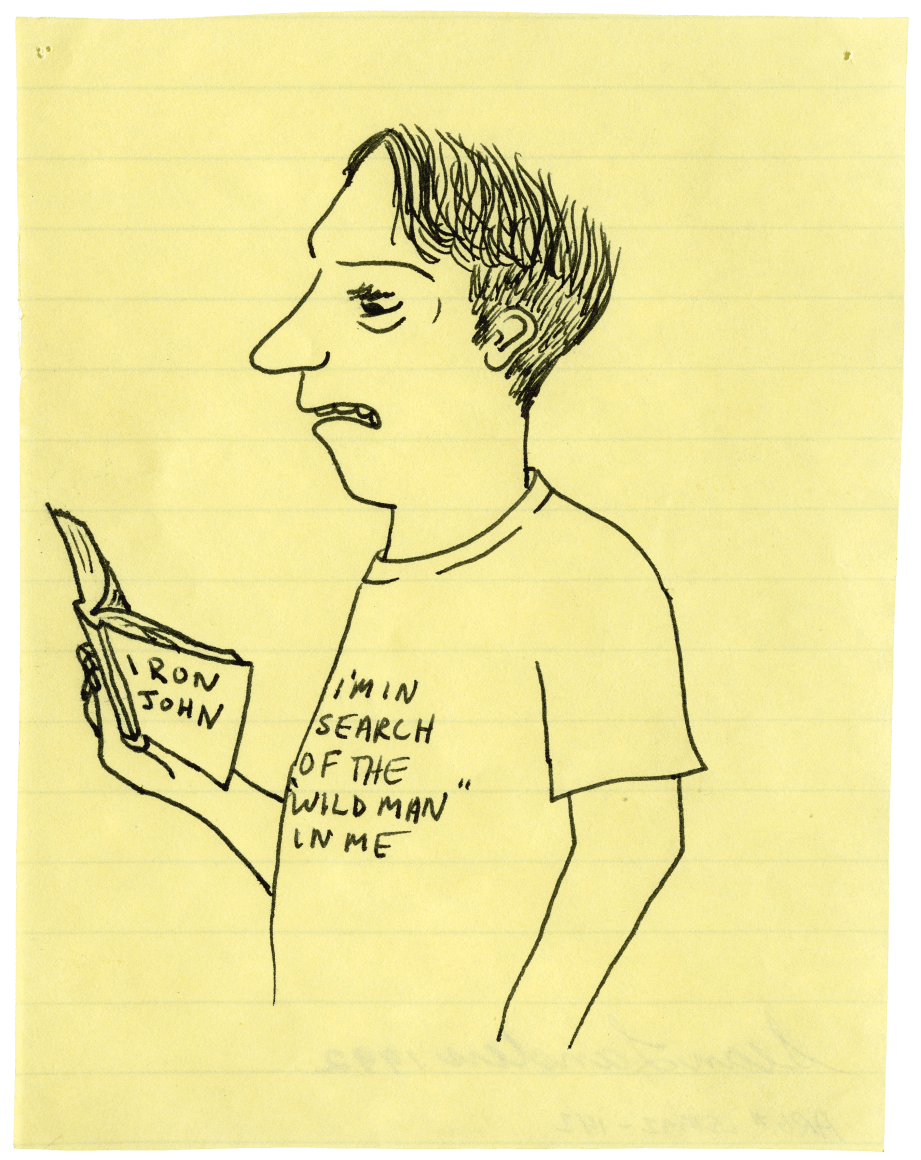 IRON
JOHN
I'M IN
SEARCH
OF THE
"WILD MAN"
IN ME